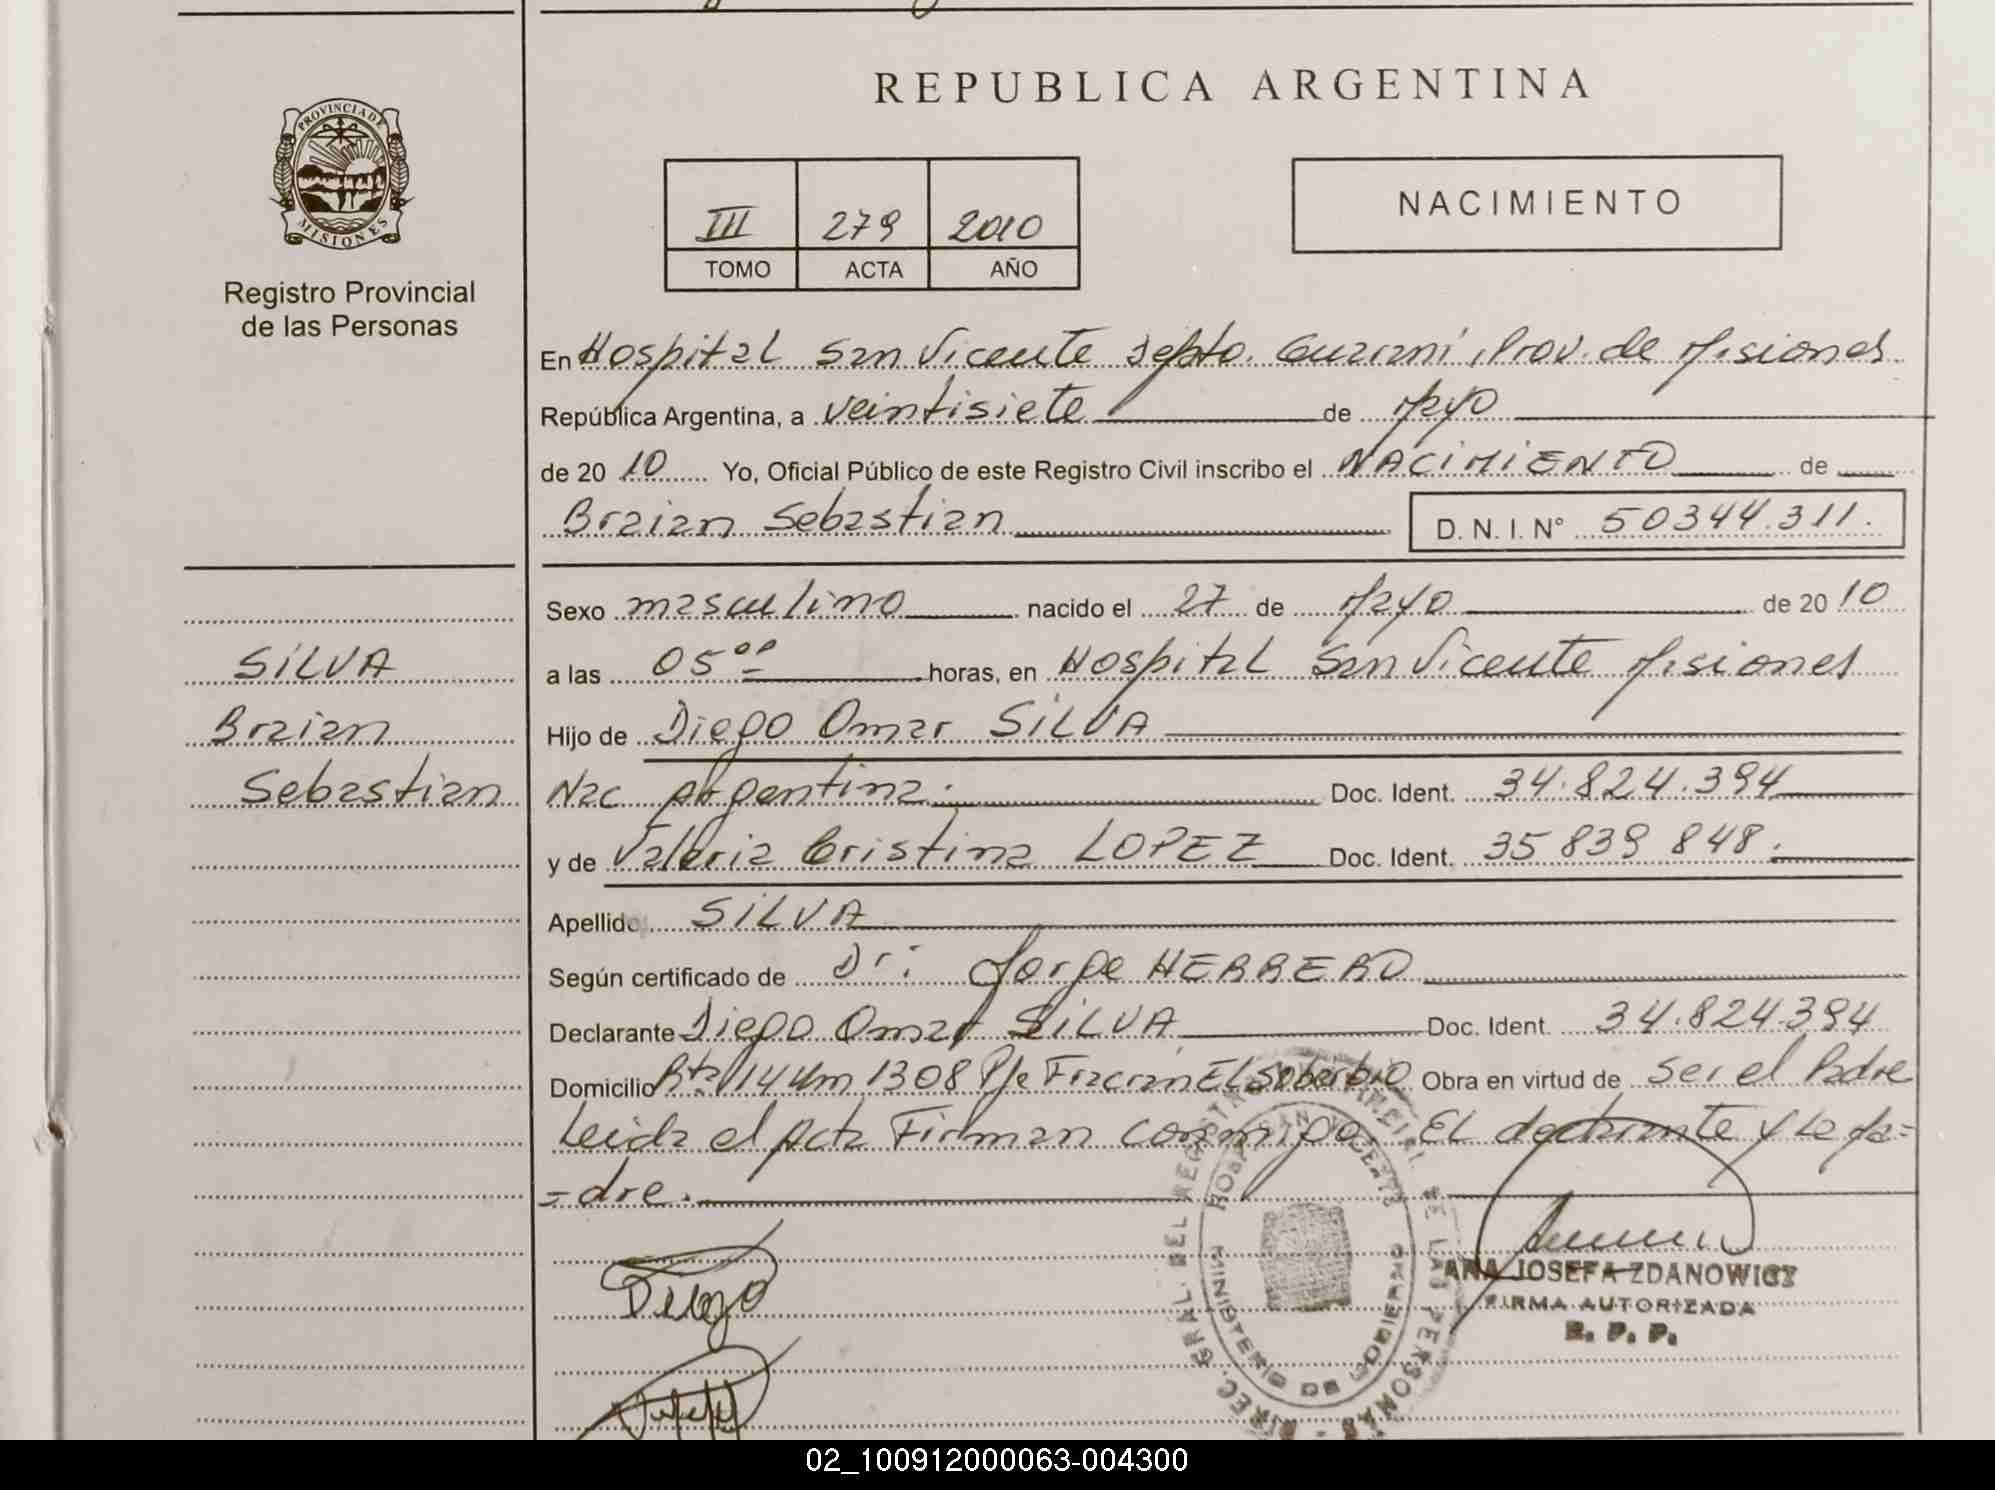 REPUBLICA ARGENTINA
PROVINCIA DE
MISIONES
Registro Provincial
de las Personas
III 279 2010
TOMO ACTA AÑO
NACIMIENTO
En Hospital San Vicente Depto. Guarani, Prov. de Misiones
República Argentina, a veintisiete de Mayo
de 20 10 Yo, Oficial Público de este Registro Civil inscribo el NACIMIENTO de
Braian Sebastian D. N. I. N° 50344.311.
Sexo masculino nacido el 27 de Mayo de 20 10
SILVA
a las 05 00 horas, en Hospital San Vicente Misiones
Braian
Hijo de Diego Omar SILVA
Sebastian
Nac Argentina. Doc. Ident. 34.824.394
y de Valeria Cristina LOPEZ Doc. Ident. 35 839 848.
Apellido SILVA
Según certificado de Dr: Jorge HERRERO
Declarante Diego Omar SILVA Doc. Ident. 34.824.394
Domicilio Rta 14 Km 1308 Pje Fracran El Soberbio Obra en virtud de ser el Padre
Leida el Acta Firman conmigo El declarante y la
=dre.
Diego
DIREC. GRAL. DEL REGISTRO PROVINCIAL DE LAS PERSONAS
HOSP. SAN VICENTE
MINISTERIO DE GOBIERNO
ANA JOSEFA ZDANOWICZ
FIRMA AUTORIZADA
R. P. P.
02_100912000063-004300